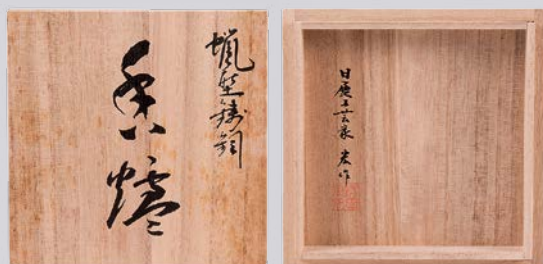 蝋型鋳銅
香爐
日展工芸家 宏作